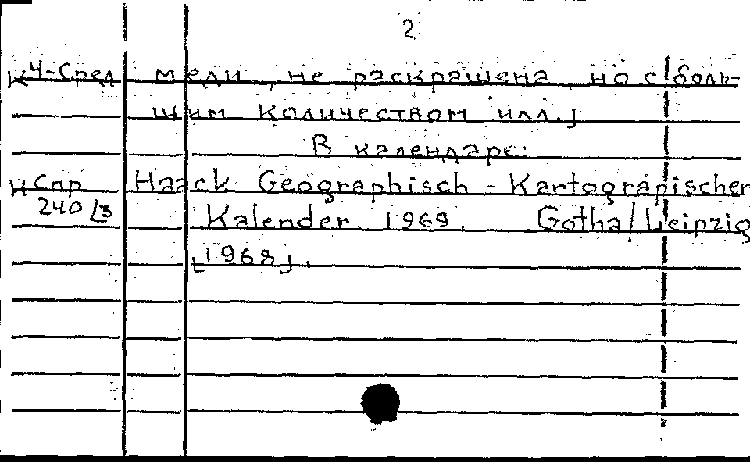 2
к Ч-Сред меди, не раскрашена, но с боль-
шим количеством илл.]
В календаре:
к Спр Haack Geographisch-Kartographischer
240/3 Kalender 1969. Gotha/Leipzig
[1968].